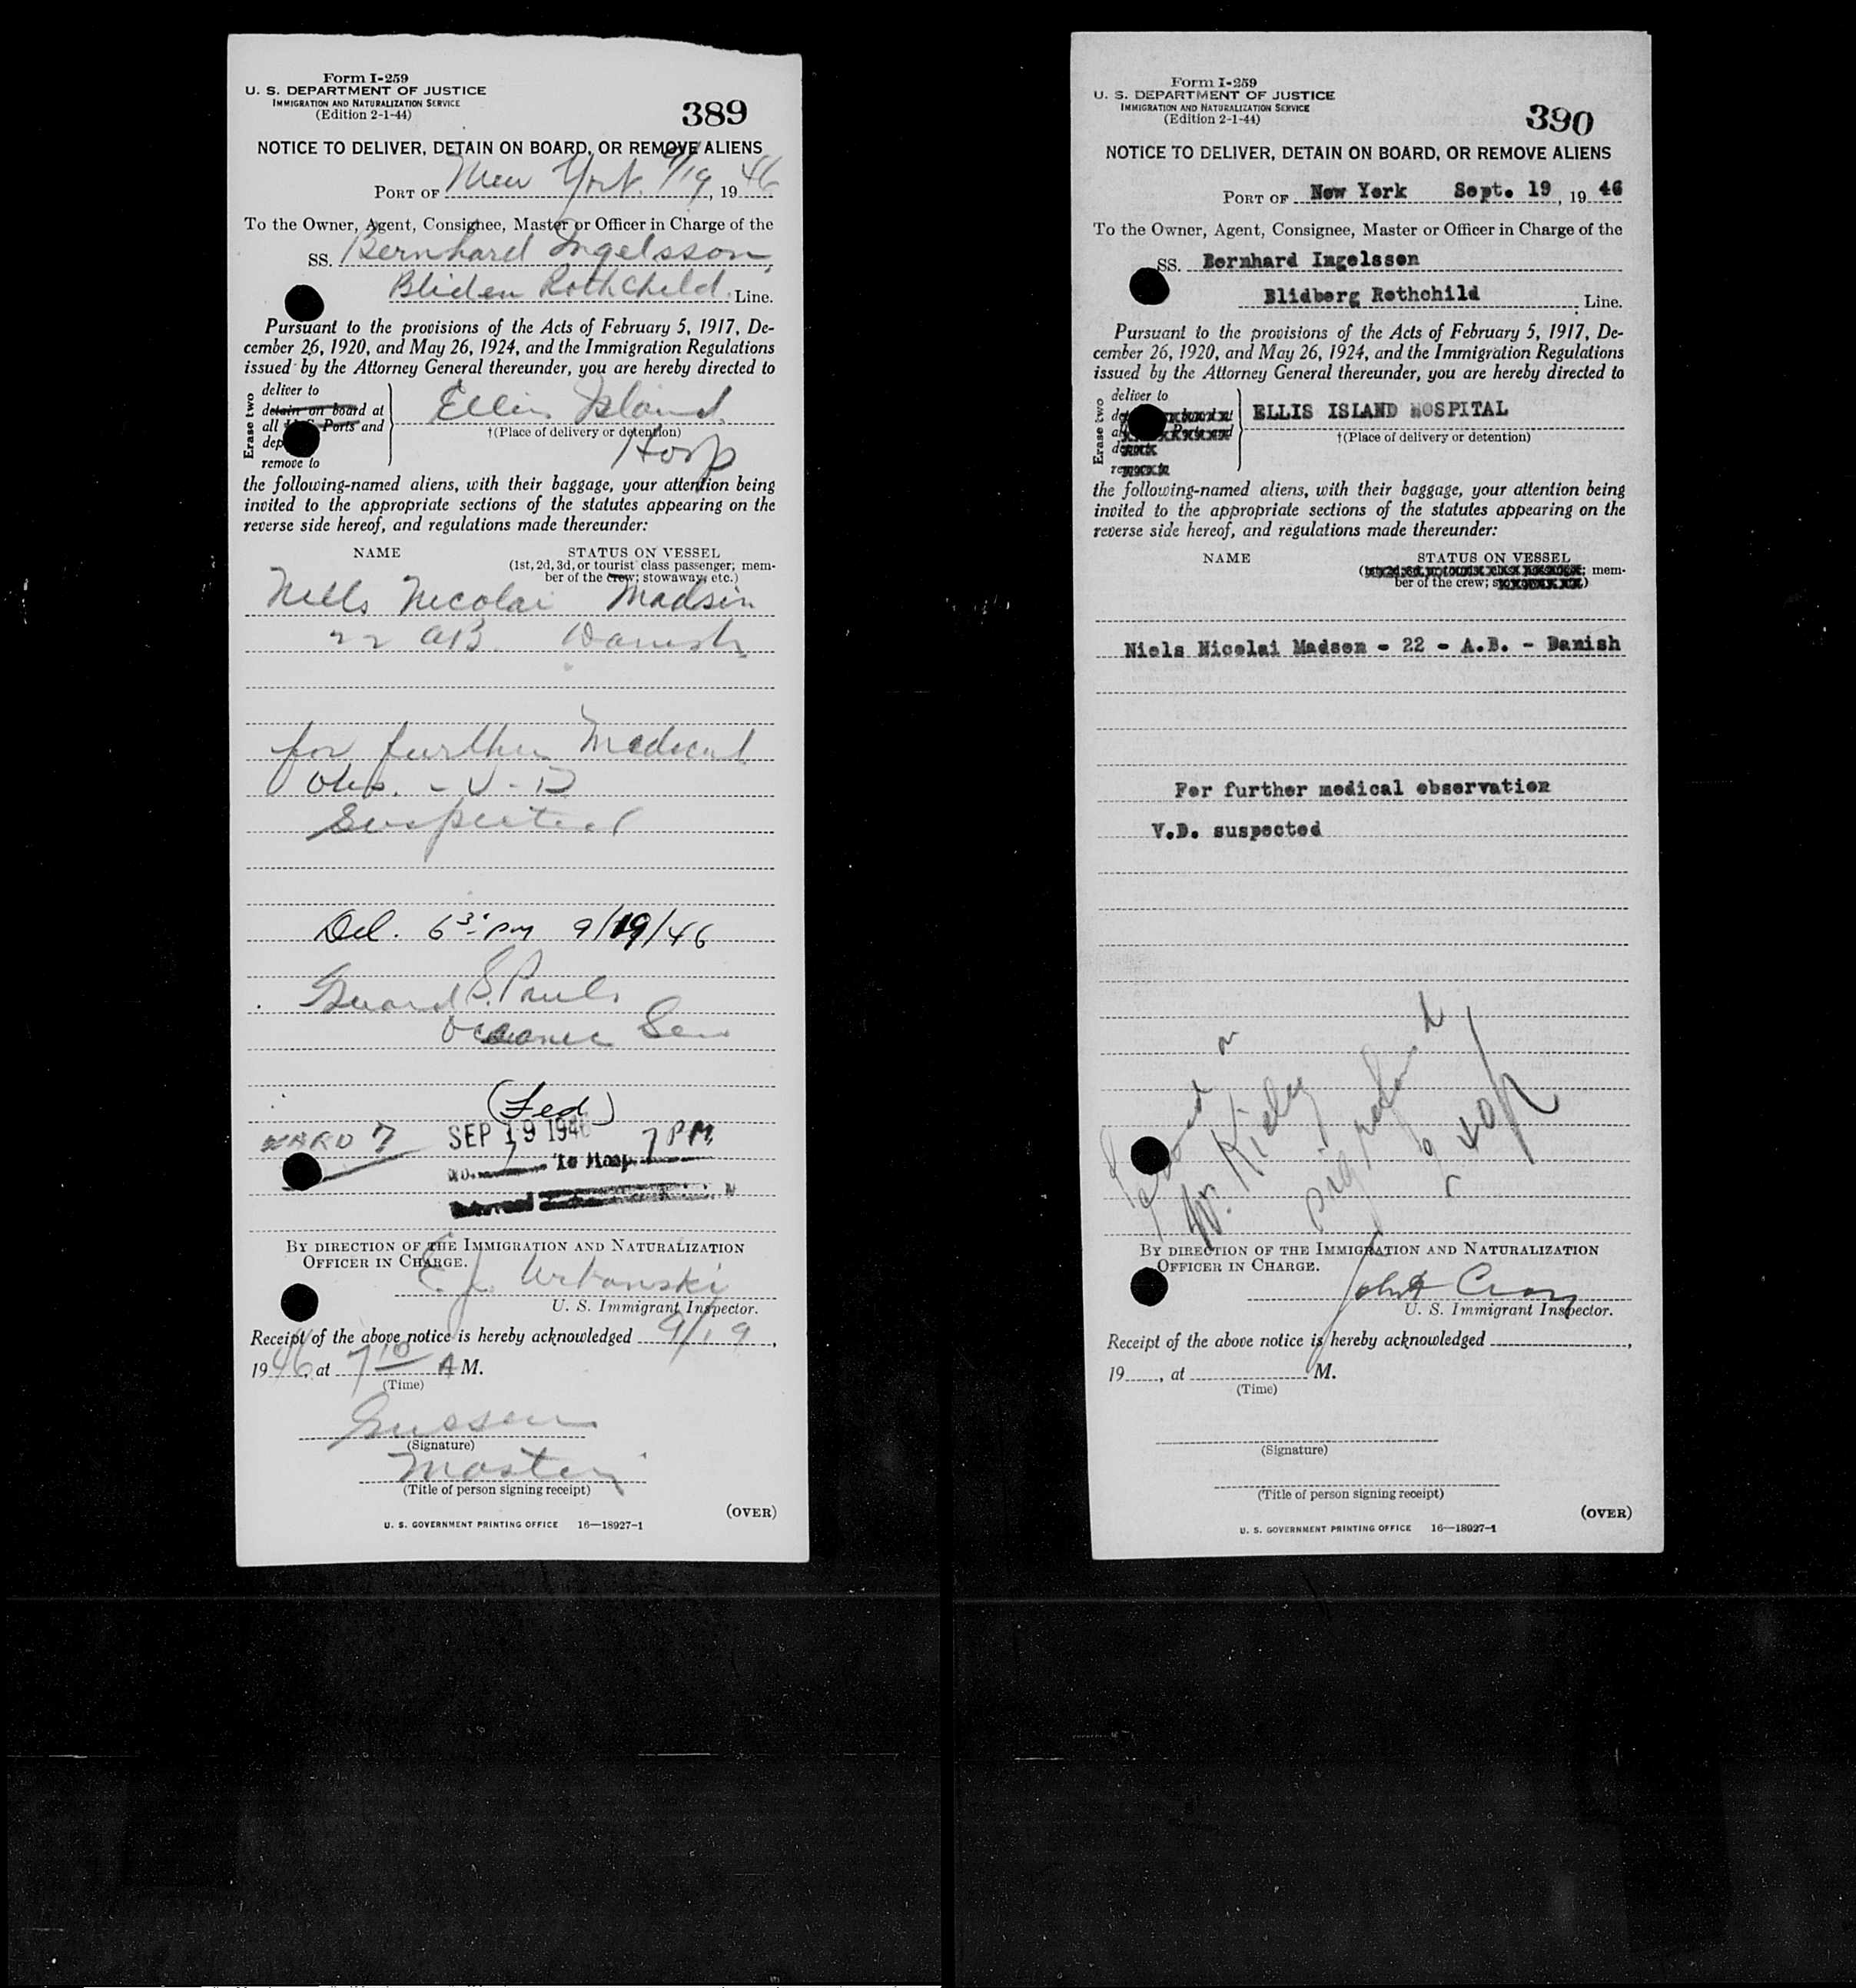 Form I-259
U. S. DEPARTMENT OF JUSTICE
IMMIGRATION AND NATURALIZATION SERVICE
(Edition 2-1-44)
389
NOTICE TO DELIVER, DETAIN ON BOARD, OR REMOVE ALIENS
PORT OF New York 9/19, 1946
To the Owner, Agent, Consignee, Master or Officer in Charge of the
SS. Bernhard Ingelsson,
Bliden Rothchild Line.
Pursuant to the provisions of the Acts of February 5, 1917, De-
cember 26, 1920, and May 26, 1924, and the Immigration Regulations
issued by the Attorney General thereunder, you are hereby directed to
Erase two
deliver to
detain on board at
all U S Ports and
dep
remove to
Ellis Island
†(Place of delivery or detention)
Hosp
the following-named aliens, with their baggage, your attention being
invited to the appropriate sections of the statutes appearing on the
reverse side hereof, and regulations made thereunder:
NAME STATUS ON VESSEL
(1st, 2d, 3d, or tourist class passenger; mem-
ber of the crew; stowaway, etc.)
Niels Nicolai Madsen
22 AB. Danish
for further Medical
Obs. - V - D
Suspected
Del. 6 30 PM 9/19/46
Guard S. Pauls
Oceanic Ser
(Fed)
WARD 7 SEP 19 1946 7 PM
To Hosp.
BY DIRECTION OF THE IMMIGRATION AND NATURALIZATION
OFFICER IN CHARGE.
E. J. Urbanski
U. S. Immigrant Inspector.
Receipt of the above notice is hereby acknowledged 9/19,
1946, at 7 10 A M.
(Time)
(Signature)
Master
(Title of person signing receipt)
(OVER)
U. S. GOVERNMENT PRINTING OFFICE 16—18927-1
Form I-259
U. S. DEPARTMENT OF JUSTICE
IMMIGRATION AND NATURALIZATION SERVICE
(Edition 2-1-44)
390
NOTICE TO DELIVER, DETAIN ON BOARD, OR REMOVE ALIENS
PORT OF New York Sept. 19, 19 46
To the Owner, Agent, Consignee, Master or Officer in Charge of the
SS. Bernhard Ingelsson
Blidberg Rothchild Line.
Pursuant to the provisions of the Acts of February 5, 1917, De-
cember 26, 1920, and May 26, 1924, and the Immigration Regulations
issued by the Attorney General thereunder, you are hereby directed to
Erase two
deliver to
ELLIS ISLAND HOSPITAL
†(Place of delivery or detention)
the following-named aliens, with their baggage, your attention being
invited to the appropriate sections of the statutes appearing on the
reverse side hereof, and regulations made thereunder:
NAME STATUS ON VESSEL
mem-
ber of the crew;
Niels Nicolai Madsen - 22 - A.B. - Danish
For further medical observation
V.D. suspected
Kiely
BY DIRECTION OF THE IMMIGRATION AND NATURALIZATION
OFFICER IN CHARGE.
U. S. Immigrant Inspector.
Receipt of the above notice is hereby acknowledged ,
19 , at M.
(Time)
(Signature)
(Title of person signing receipt)
(OVER)
U. S. GOVERNMENT PRINTING OFFICE 16—18927-1